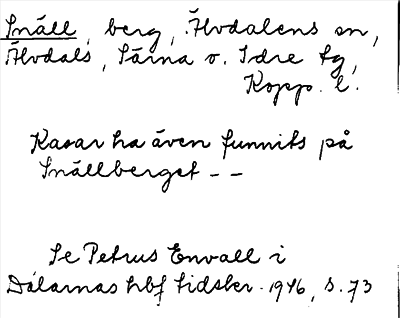 Snäll, berg, Älvdalens sn,
Älvdals, Särna o. Idre tg,
Kopp. l.
Kasar ha även funnits på
Snällberget - -
Se Petrus Envall i
Dalarnas hbf tidskr. 1946, s. 73